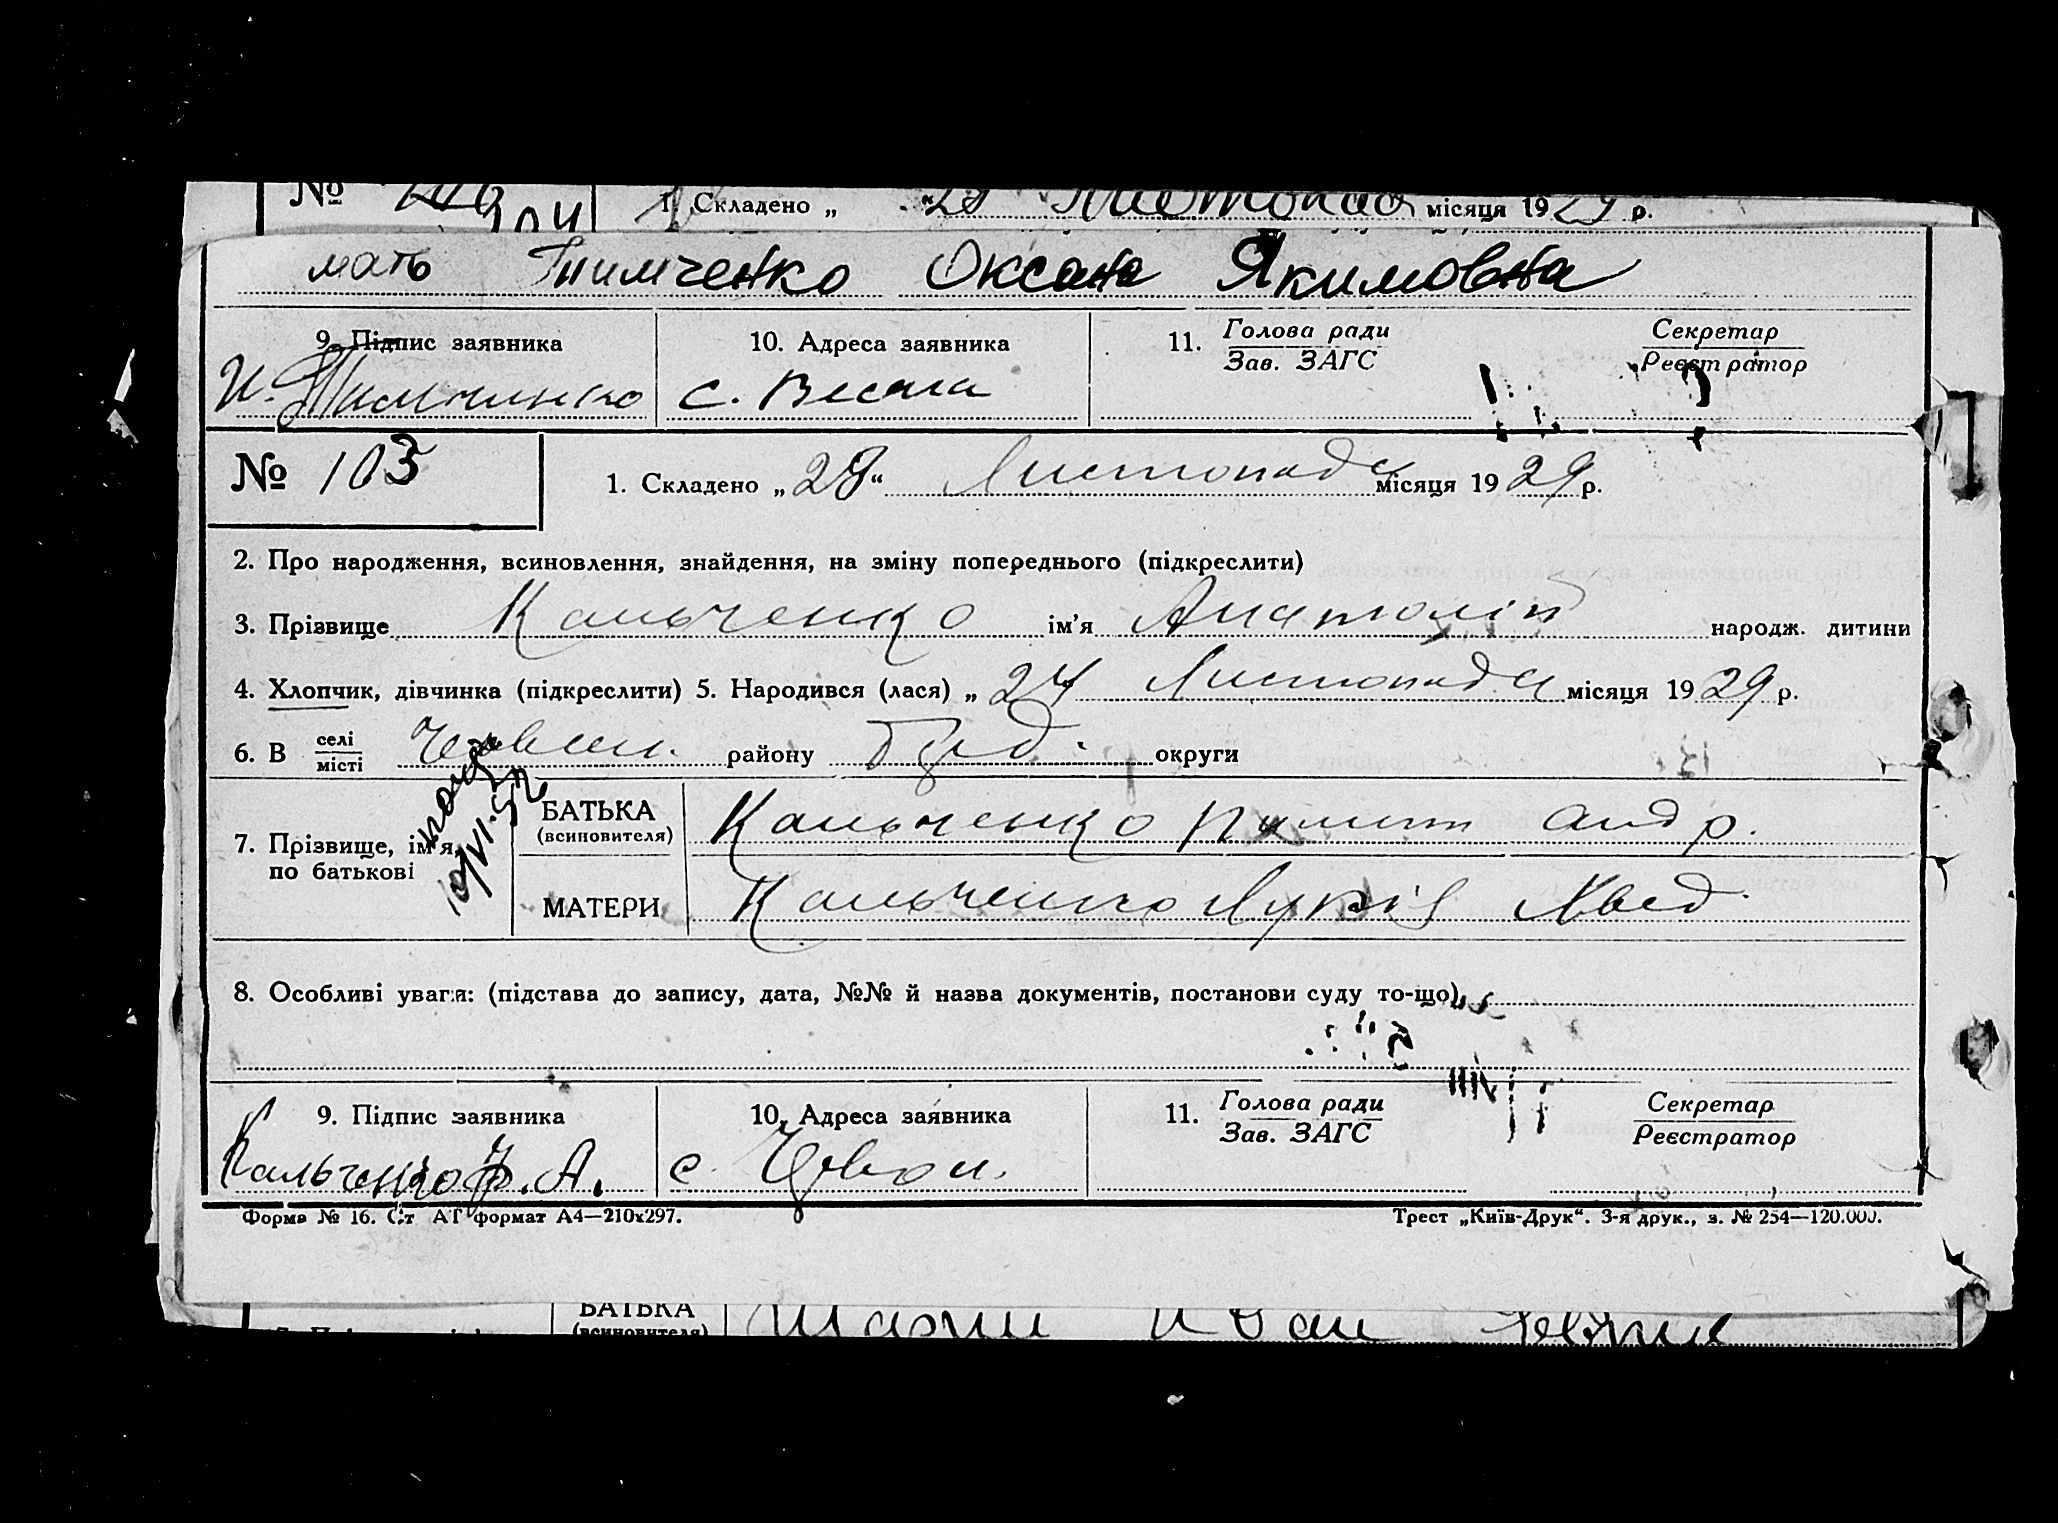 № 1. Складено „ 29 Листопада місяця 1929 р.
104
мать Тимченко Оксана Якимовна
9. Підпис заявника 10. Адреса заявника 11. Голова ради Секретар
Зав. ЗАГС Реєстратор
И. Тимченко с. Весела
№ 103 1. Складено „28“ Листопада місяця 1929 р.
2. Про народження, всиновлення, знайдення, на зміну попереднього (підкреслити)
3. Прізвище Кальченко ім’я Анатолій народж. дитини
4. Хлопчик, дівчинка (підкреслити) 5. Народився (лася) „ 24 Листопада місяця 1929 р.
6. В селі
місті району округи
7. Прізвище, ім’я, по батькові
БАТЬКА (всиновителя) Кальченко Пилип Андр.
МАТЕРИ Кальченко Лукія
8. Особливі уваги: (підстава до запису, дата, №№ й назва документів, постанови суду то-що)
9. Підпис заявника 10. Адреса заявника 11. Голова ради Секретар
Зав. ЗАГС Реєстратор
Кальченко Ф. А. с.
Форма № 16. Ст АТ формат А4—210х297. Трест „Київ-Друк“. 3-я друк., з. № 254—120.000.
БАТЬКА Иван
(всиновителя)